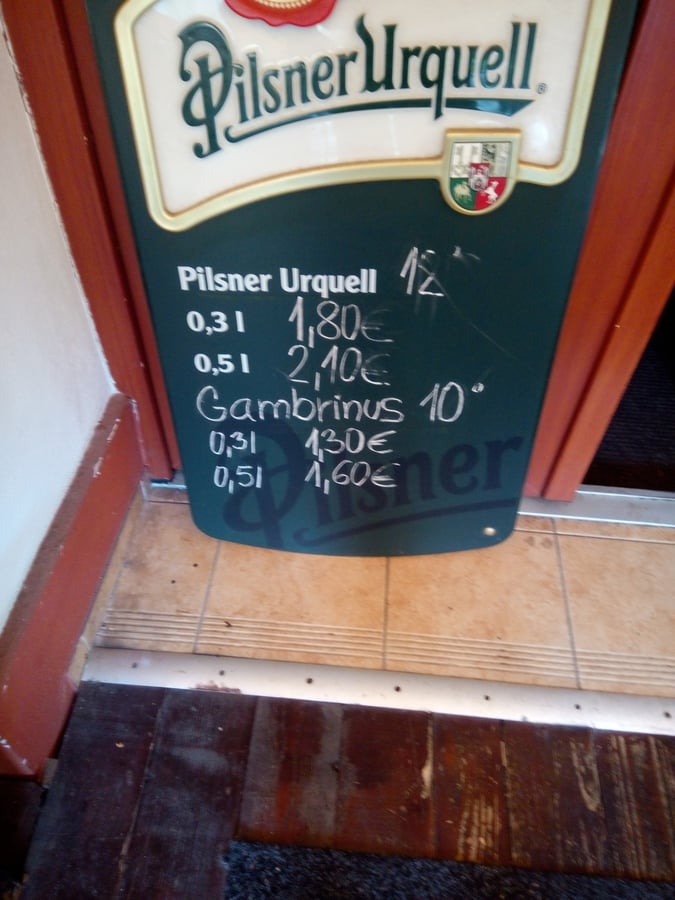 Pilsner Urquell
Pilsner Urquell 12°
0,3 l 1,80€
0,5 l 2,10€
Gambrinus 10°
0,3l 1,30€
0,5l 1,60€
Pilsner